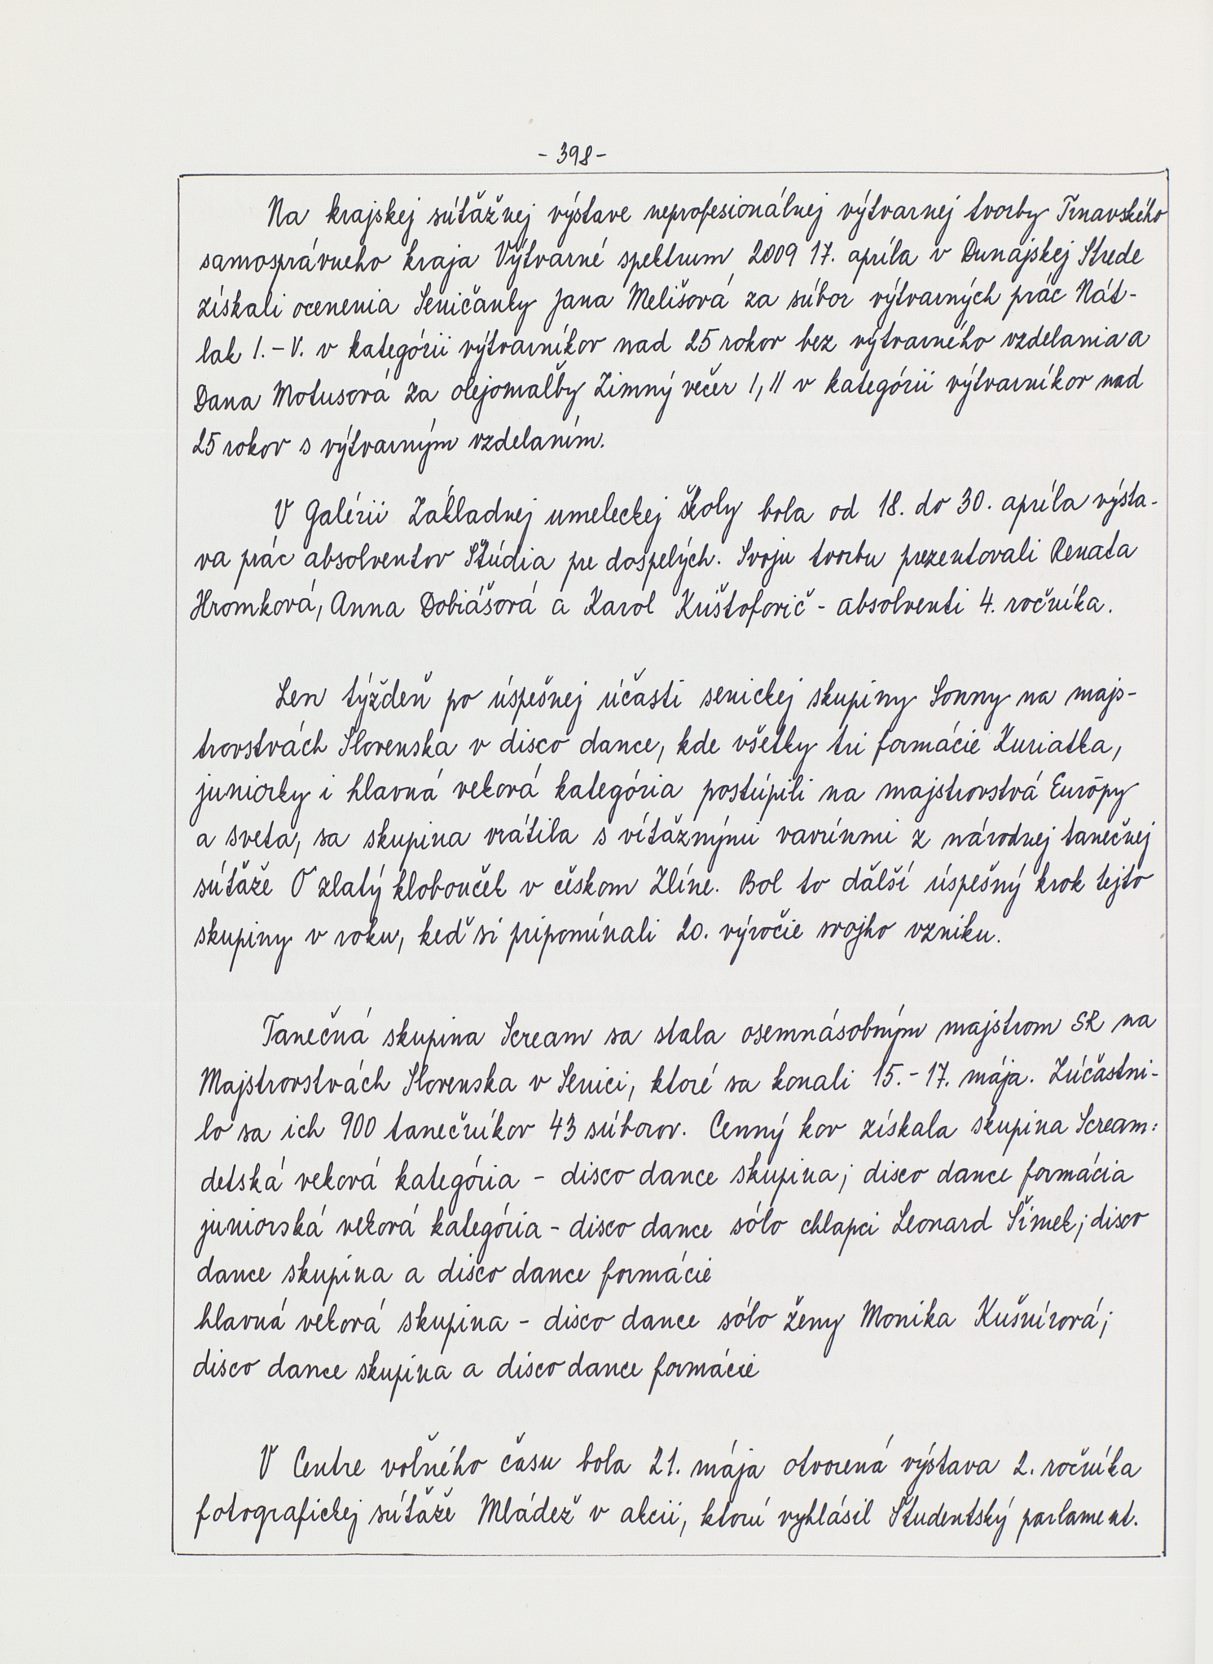 - 398 -
Na krajskej súťažnej výstave neprofesionálnej výtvarnej tvorby Trnavského
samosprávneho kraja Výtvarné spektrum 2009 17. apríla v Dunajskej Strede
získali ocenenia Seničanky Jana Melišová za súbor výtvarných prác Nát-
lak I. - V. v kategórii výtvarníkov nad 25 rokov bez výtvarného vzdelania a
Dana Motusová za olejomaľby Zimný večer I, II v kategórii výtvarníkov nad
25 rokov s výtvarným vzdelaním.
V Galérii Základnej umeleckej školy bola od 18. do 30. apríla výsta-
va prác absolventov Štúdia pre dospelých. Svoju tvorbu prezentovali Renata
Hromková, Anna Dobiášová a Karol Krištoforič - absolventi 4. ročníka.
Len týždeň po úspešnej účasti senickej skupiny Sonny na majs-
trovstvách Slovenska v disco dance, kde všetky tri formácie Kuriatka,
juniorky i hlavná veková kategória postúpili na majstrovstvá Európy
a sveta, sa skupina vrátila s víťaznými vavrínmi z národnej tanečnej
súťaže O zlatý klobouček v českom Zlíne. Bol to ďalší úspešný krok tejto
skupiny v roku, keď si pripomínali 20. výročie svojho vzniku.
Tanečná skupina Scream sa stala osemnásobným majstrom SR na
Majstrovstvách Slovenska v Senici, ktoré sa konali 15. - 17. mája. Zúčastni-
lo sa ich 900 tanečníkov 43 súborov. Cenný kov získala skupina Scream:
detská veková kategória - disco dance skupina; disco dance formácia
juniorská veková kategória - disco dance sólo chlapci Leonard Šimek; disco
dance skupina a disco dance formácie
hlavná veková skupina - disco dance sólo ženy Monika Kušnírová;
disco dance skupina a disco dance formácie
V Centre voľného času bola 21. mája otvorená výstava 2. ročníka
fotografickej súťaže Mládež v akcii, ktorú vyhlásil Študentský parlament.